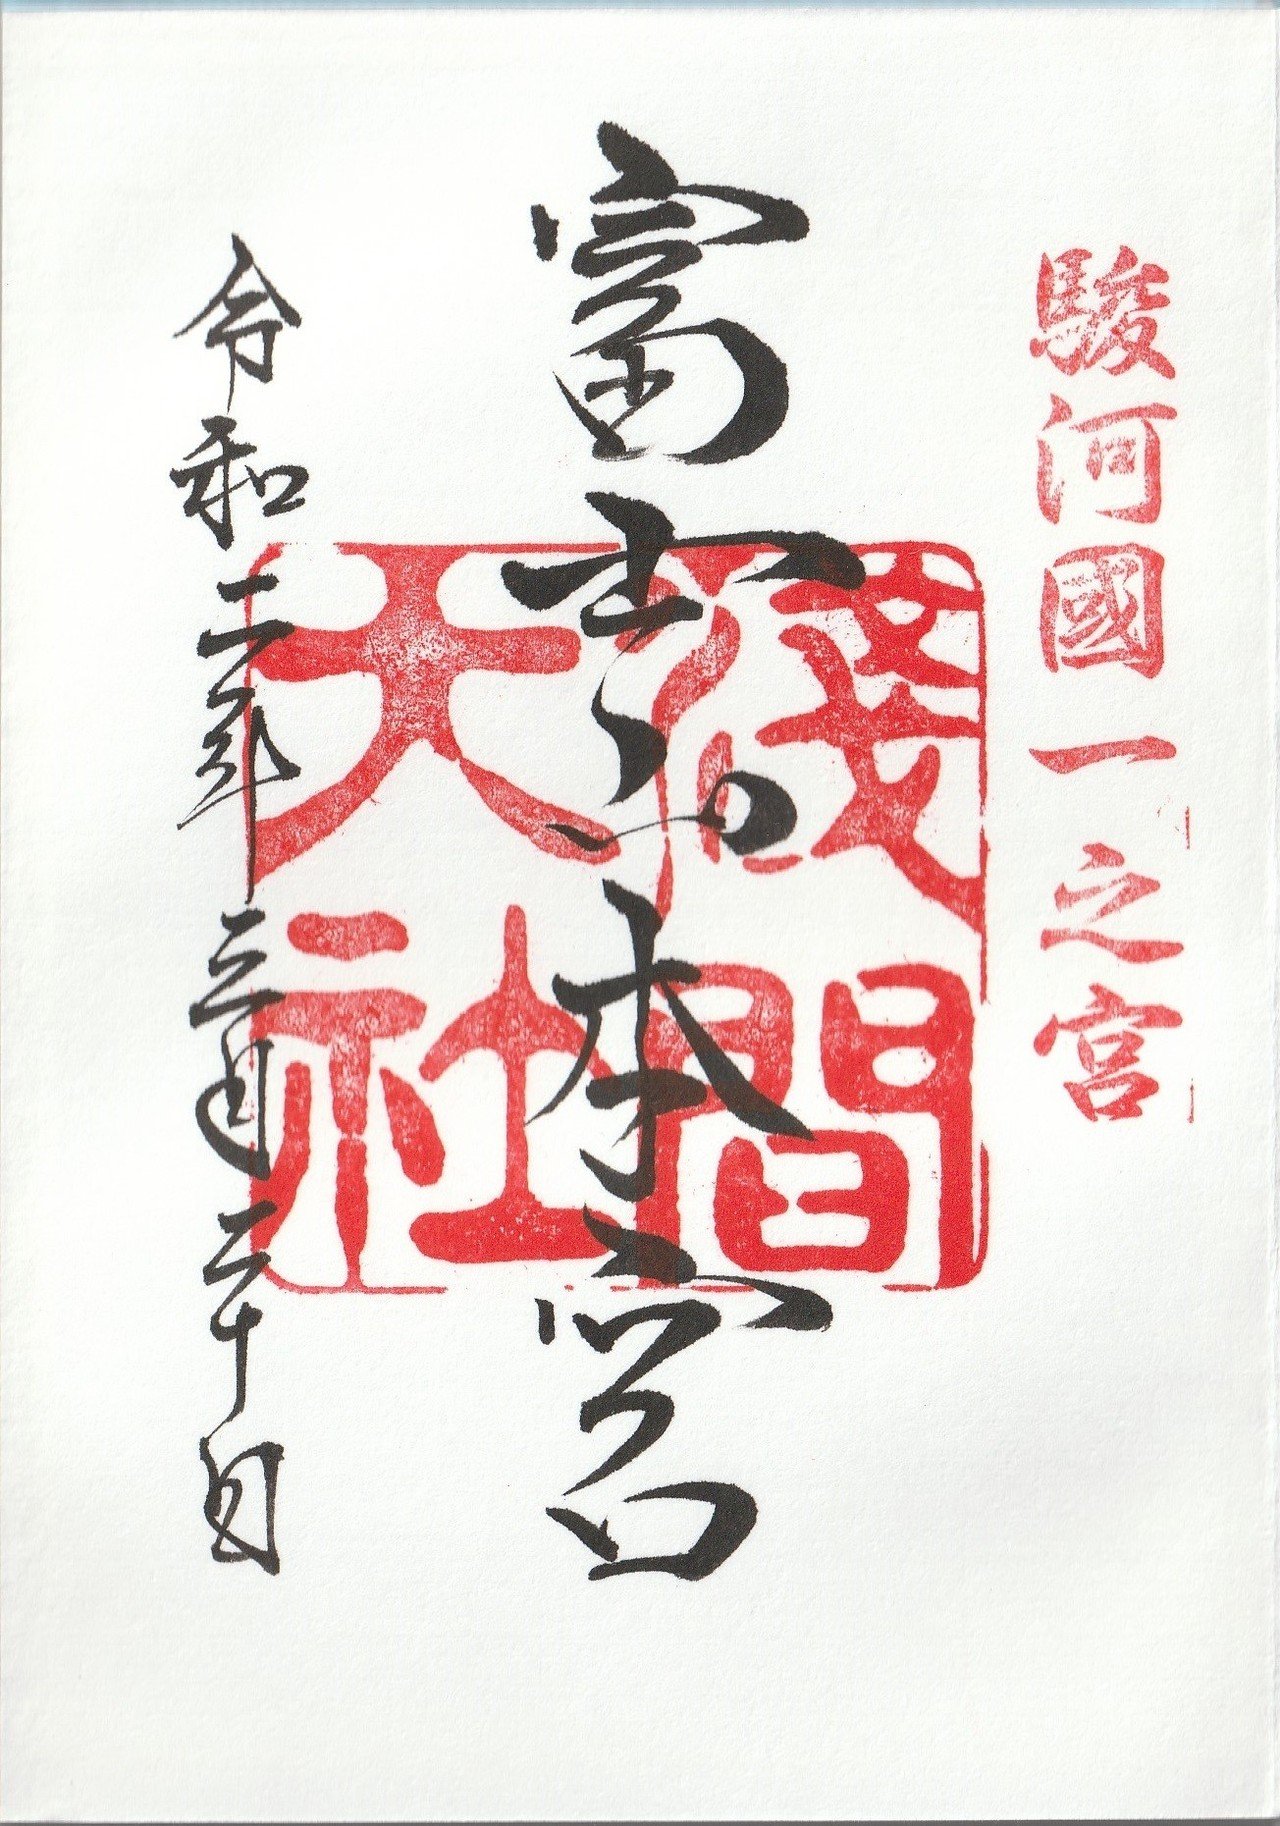 駿河國一之宮
富士山本宮
淺間
大社
令和二年三月二十日